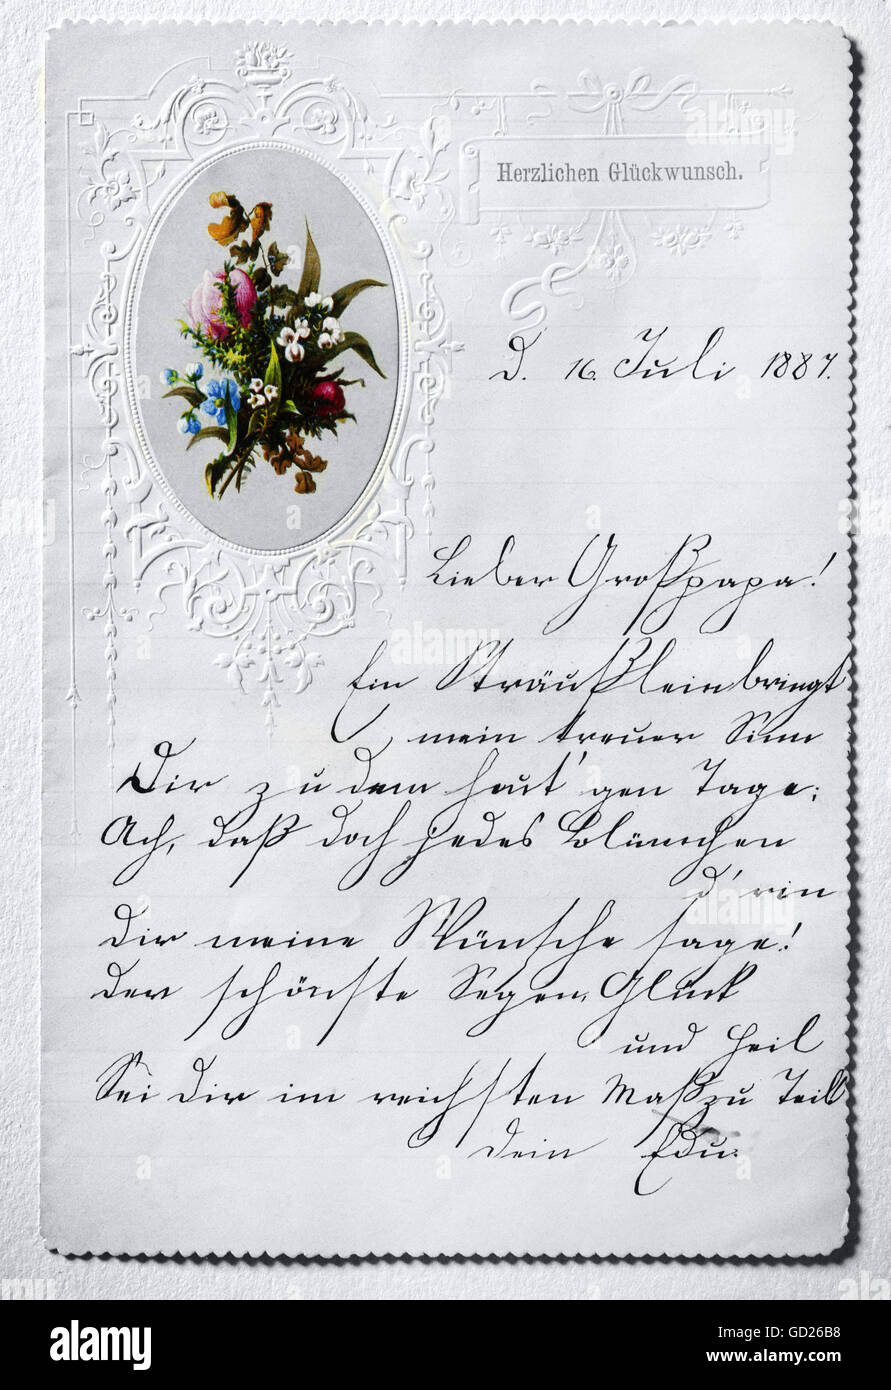 Herzlichen Glückwunsch.
D. 16. Juli 1887.
Lieber Großpapa!
Ein Sträußlein bringt
mein treuer Sinn
Dir zu dem heut'gen Tage;
Ach, daß doch jedes Blümchen
d'rin
Dir meine Wünsche sage!
Der schönste Segen, Glück
und Heil
Sei Dir im reichsten Maß zu Teil
Dein Edu.
alamy
Image ID: GD26B8
www.alamy.com